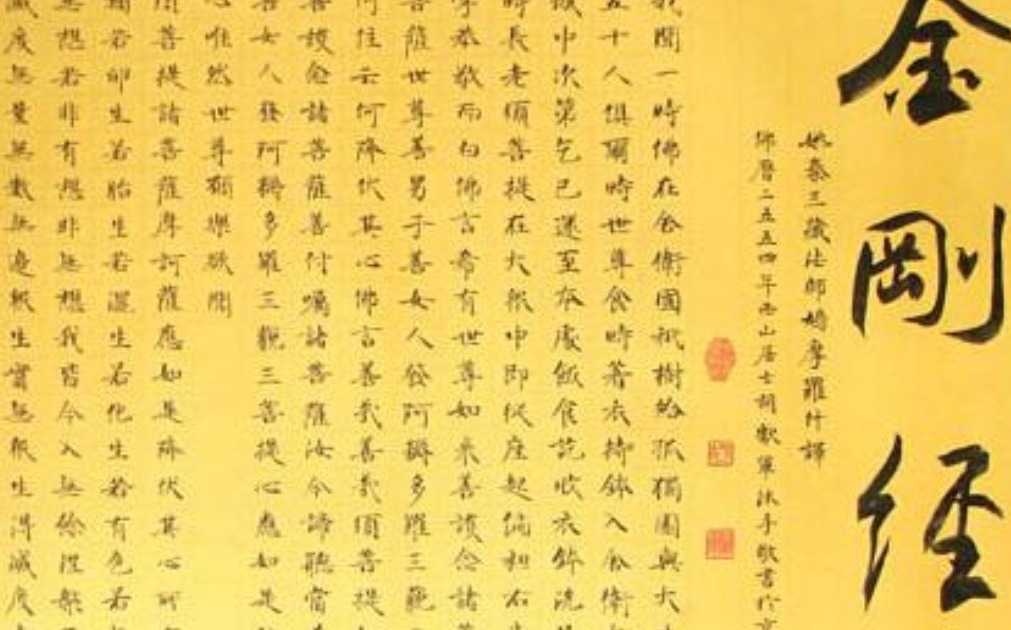 金剛經
姚秦三藏法師鳩摩羅什譯
佛曆二五五四年西山居士胡獻軍沐手敬書於京
我聞一時佛在舍衛國祇樹給孤獨園與大
五十人俱爾時世尊食時著衣持鉢入舍衛
城中次第乞已還至本處飯食訖收衣鉢洗
時長老須菩提在大衆中即從座起偏袒右
掌恭敬而白佛言希有世尊如來善護念諸
菩薩世尊善男子善女人發阿耨多羅三藐
何住云何降伏其心佛言善哉善哉須菩提
善護念諸菩薩善付囑諸菩薩汝今諦聽當
善女人發阿耨多羅三藐三菩提心應如是
心唯然世尊願樂欲聞
菩提諸菩薩摩訶薩應如是降伏其心所
類若卵生若胎生若濕生若化生若有色若
無想若非有想非無想我皆令入無餘涅槃
滅度無量無數無邊衆生實無衆生得滅度